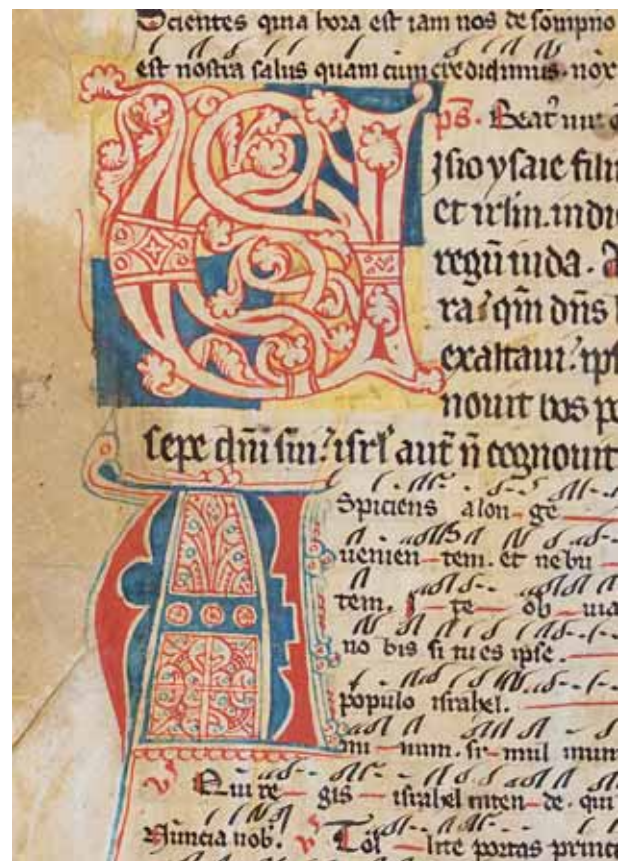 Scientes quia hora est iam nos de sompno
est nostra salus quam cum credidimus. nox
ps. Beat' uir
Visio ysaie filii
et irlm. in di
regū iuda. A
ra? qm dns l
exaltaui? ips
nouit bos po
sepe dñi sui? isrl' aut n cognouit
ASpiciens a lon-ge
uenien-tem. et nebu
tem. I-te ob-uia
no bis si tu es ipse.
populo israhel.
mun-num. si-mul in unum
Qui re-gis israhel inten-de. qui
Nuncia nob. Tol-lite portas princi